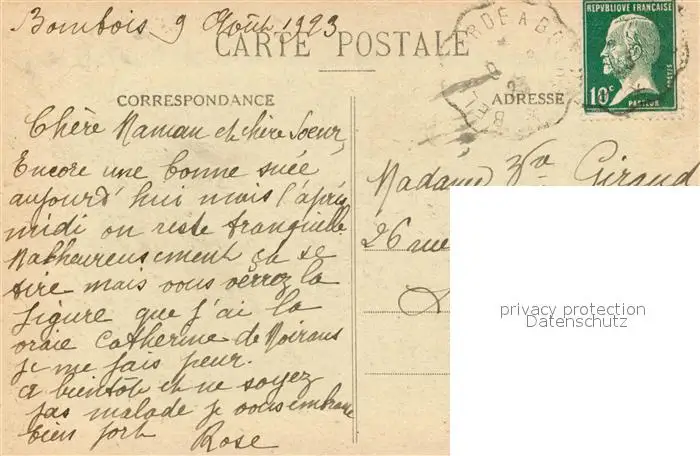 Bombois 9 Août 1923
CARTE POSTALE
RÉPUBLIQUE FRANÇAISE
10c
POSTES
PASTEUR
CORRESPONDANCE
ADRESSE
Chère Maman et chère Soeur,
Encore une bonne suée
aujourd'hui mais l'après
midi on reste tranquille
Malheureusement ça se
tire mais vous verrez la
figure que j'ai la
vraie Catherine de Moirans
je me fais peur.
a bientôt et ne soyez
pas malade je vous embrasse
bien fort
Rose
Madame Vve Giraud
26 rue
privacy protection
Datenschutz